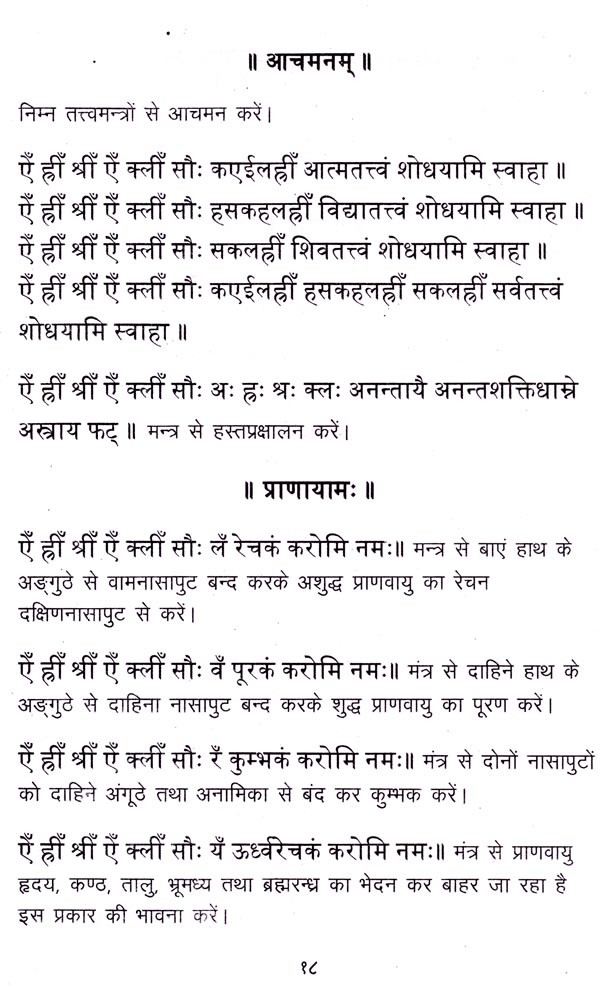 ॥ आचमनम् ॥
निम्न तत्त्वमन्त्रों से आचमन करें।
ऐँ ह्रीँ श्रीँ ऐँ क्लीँ सौः कएईलह्रीँ आत्मतत्त्वं शोधयामि स्वाहा ॥
ऐँ ह्रीँ श्रीँ ऐँ क्लीँ सौः हसकहलह्रीँ विद्यातत्त्वं शोधयामि स्वाहा ॥
ऐँ ह्रीँ श्रीँ ऐँ क्लीँ सौः सकलह्रीँ शिवतत्त्वं शोधयामि स्वाहा ॥
ऐँ ह्रीँ श्रीँ ऐँ क्लीँ सौः कएईलह्रीँ हसकहलह्रीँ सकलह्रीँ सर्वतत्त्वं
शोधयामि स्वाहा ॥
ऐँ ह्रीँ श्रीँ ऐँ क्लीँ सौः अः ह्रः श्रः क्लः अनन्तायै अनन्तशक्तिधाम्ने
अस्त्राय फट् ॥ मन्त्र से हस्तप्रक्षालन करें।
॥ प्राणायामः ॥
ऐँ ह्रीँ श्रीँ ऐँ क्लीँ सौः लँ रेचकं करोमि नमः॥ मन्त्र से बाएं हाथ के
अङ्गुठे से वामनासापुट बन्द करके अशुद्ध प्राणवायु का रेचन
दक्षिणनासापुट से करें।
ऐँ ह्रीँ श्रीँ ऐँ क्लीँ सौः वँ पूरकं करोमि नमः॥ मंत्र से दाहिने हाथ के
अङ्गुठे से दाहिना नासापुट बन्द करके शुद्ध प्राणवायु का पूरण करें।
ऐँ ह्रीँ श्रीँ ऐँ क्लीँ सौः रँ कुम्भकं करोमि नमः॥ मंत्र से दोनों नासापुटों
को दाहिने अंगूठे तथा अनामिका से बंद कर कुम्भक करें।
ऐँ ह्रीँ श्रीँ ऐँ क्लीँ सौः यँ ऊर्ध्वरेचकं करोमि नमः॥ मंत्र से प्राणवायु
हृदय, कण्ठ, तालु, भ्रूमध्य तथा ब्रह्मरन्ध्र का भेदन कर बाहर जा रहा है
इस प्रकार की भावना करें।
१८